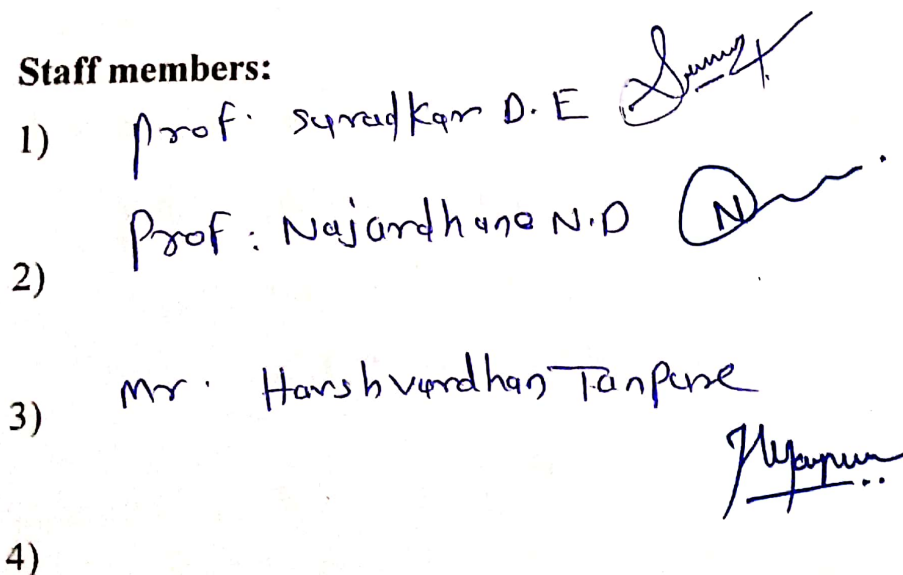 Staff members:
1) Prof. Suradkar D.E
2) Prof: Najardhane N.D
3) Mr. Harshvardhan Tanpure
4)